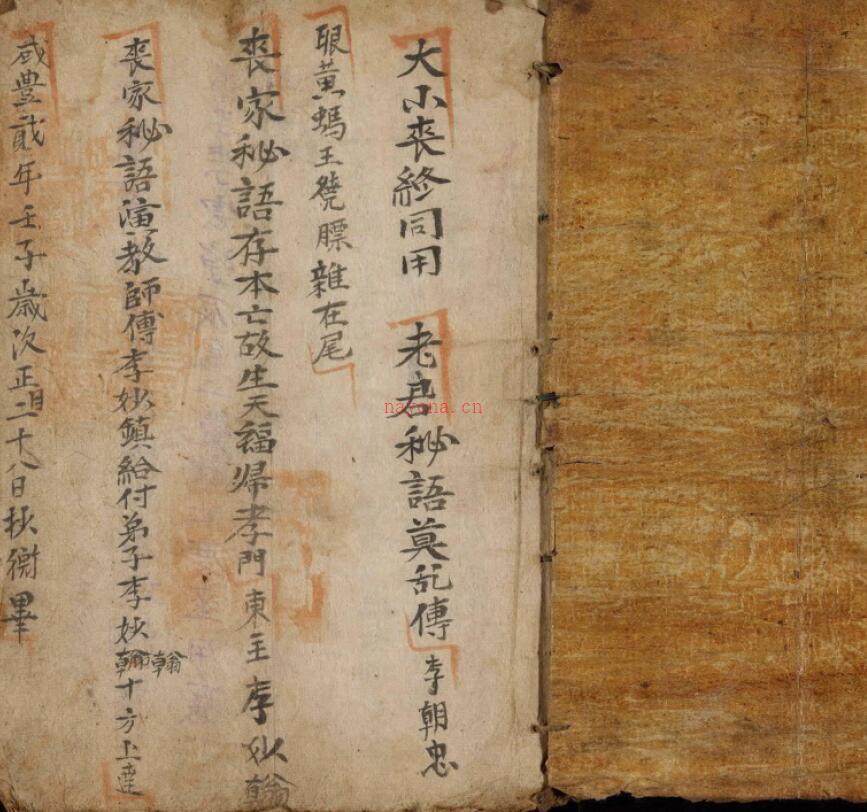 大小喪終同用 老君秘語莫乱傳 李朝忠
眼黃螞王繞膘雜在尾
喪家秘語存本亡故生天福帰孝門 東主李妙翰
喪家秘語演教師傳李妙鎮給付弟子李妙翰十方上達
咸豊貳年壬子歲次正月二十八日抄 畢
nayona.cn